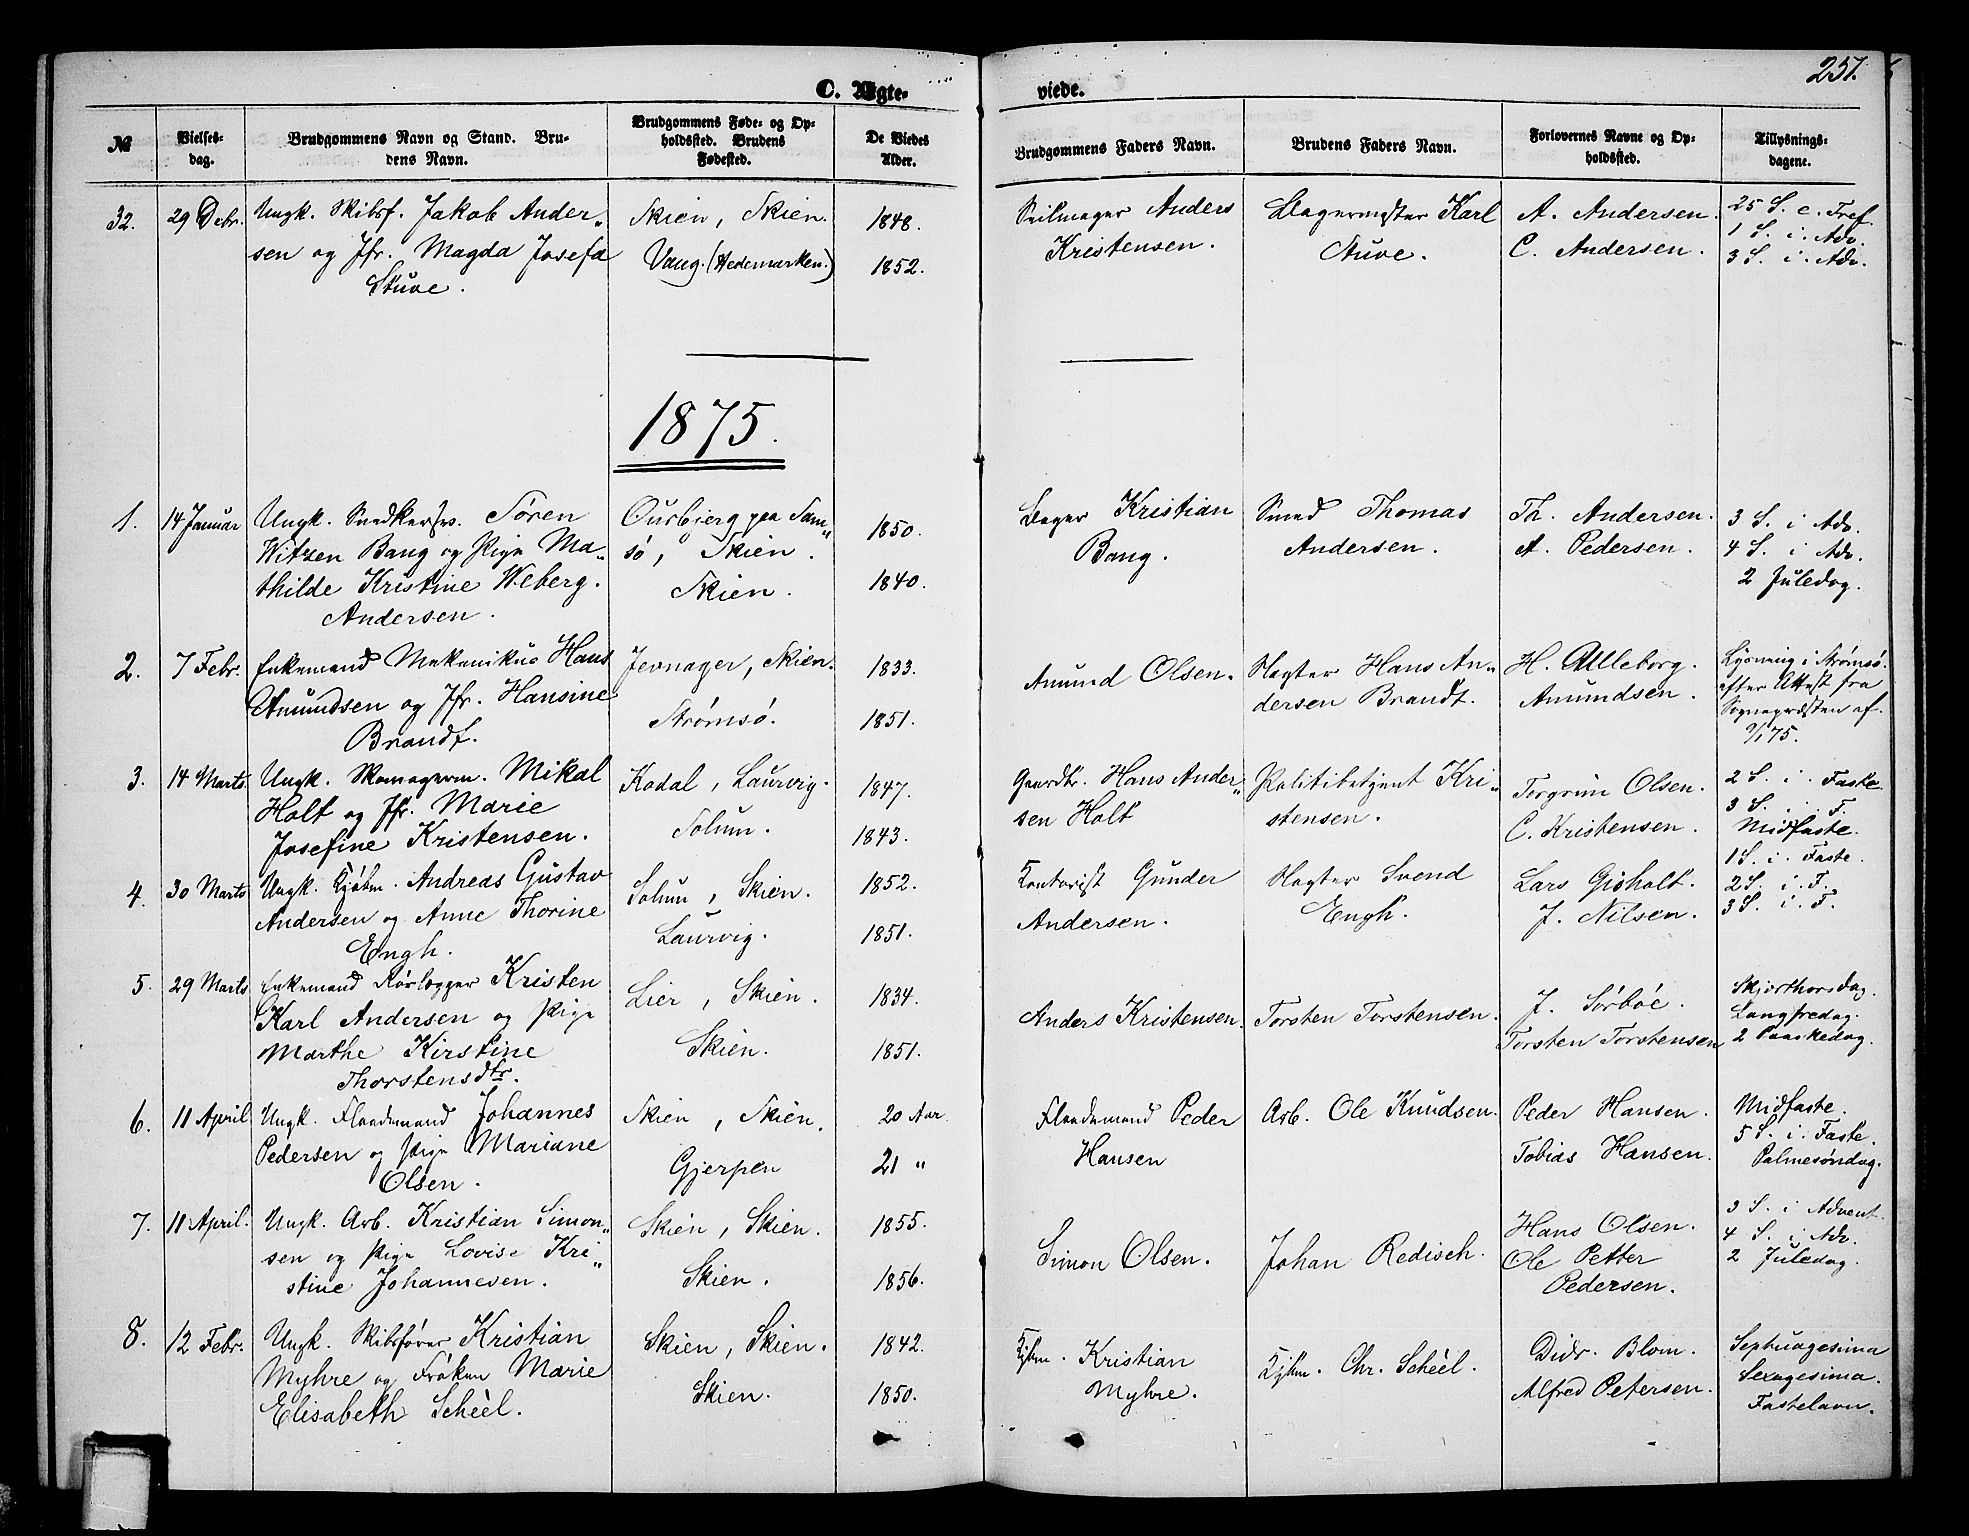 C. Ægte-
viede.
257.
№
Vielses-
dag.
Brudgommens Navn og Stand. Bru-
dens Navn.
Brudgommens Føde- og Op-
holdssted. Brudens
Fødested.
De Viedes
Alder.
Brudgommens Faders Navn.
Brudens Faders Navn.
Forlovernes Navne og Op-
holdssted.
Tillysnings-
dagene.
32.
29 Debr.
Ungk. Skibsf. Jakob Ander„
sen og Jfr. Magda Josefa
Stuve.
Skien, Skien.
Vang. (Hedemarken.)
1848.
1852.
Seilmager Anders
Kristensen.
Bagermester Karl
Stuve.
A. Andersen.
C. Andersen.
25 S. e. Tref.
1 S. i. Adv.
3 S. i. Adv.
1875.
1.
14 Januar
Ungk. Snedkersv. Søren
Witzen Bang og Pige Ma„
thilde Kristine Weberg.
Andersen.
Oursbjerg paa Sam„
sø, Skien.
Skien.
1850.
1840.
Bager Kristian
Bang.
Smed Thomas
Andersen.
Th. Andersen.
A. Pedersen.
3 S. i Adv.
4 S. i Adv.
2 Juledag.
2.
7 Febr.
Enkemand Mekanikus Hans
Amundsen og Jfr. Hansine
Brandt.
Jevnager, Skien.
Strømsø.
1833.
1851.
Amund Olsen.
Vogter Hans An„
dersen Brandt.
H. Ulleborg.
Amundsen.
Lysning i Strømsø.
efter Attest fra
Sognepræsten af.
75.
3.
14 Marts.
Ungk. Skomagerm. Mikal
Holt og Jfr. Marie
Josefine Kristensen.
Kodal, Laurvig.
Solum.
1847.
1843.
Gaardbr. Hans Ander„
sen Holt
Politibetjent Kri„
stensen.
Torgrim Olsen.
C. Kristensen.
2 S. i. Faste.
3 S. i. F.
Midfaste.
4.
30 Marts
Ungk. Kjøbm. Andreas Gustav
Andersen og Anne Thorine
Engh.
Solum, Skien.
Laurvig.
1852.
1851.
Kontorist Gunder
Andersen.
Vogter Svend
Engh.
Lars Gisholt.
J. Nilsen.
1 S. i. Faste.
2 S. i. F.
3 S. i. F.
5.
29 Marts
Enkemand Rørlægger Kristen
Karl Andersen og Pige
Marthe Kirstine
Thorstensdtr.
Lier, Skien.
Skien.
1834.
1851.
Anders Kristensen.
Torsten Torstensen.
J. Sørbøe.
Torsten Torstensen
Skjærthorsdag.
Langfredag.
2 Paaskedag.
6.
11 April
Ungk. Flaademand Johannes
Pedersen og Pige Mariane
Olsen.
Skien, Skien.
Gjerpen
20 Aar.
21 „
Flaademand Peder
Hansen
Arb. Ole Knudsen.
Peder Hansen.
Tobias Hansen.
Midfaste.
5 S. i. Faste.
Palmesøndag.
7.
11 April.
Ungk. Arb. Kristian Simon„
sen og Pige Lovise Kri„
stine Johannesen.
Skien, Skien.
Skien.
1855.
1856.
Simon Olsen.
Johan Redisch.
Hans Olsen.
Ole Petter
Pedersen.
3 S. i Advent.
4 S. i Adv.
2 Juledag.
8.
12 Febr.
Ungk. Skibsfører Kristian
Myhre og Frøken Marie
Elisabeth Scheel.
Skien, Skien.
Skien.
1842.
1850.
Kjbm. Kristian
Myhre.
Kjbm. Chr. Scheel.
Didr. Blom.
Alfred Petersen.
Septuagesima
Sexagesima.
Fastelavn.